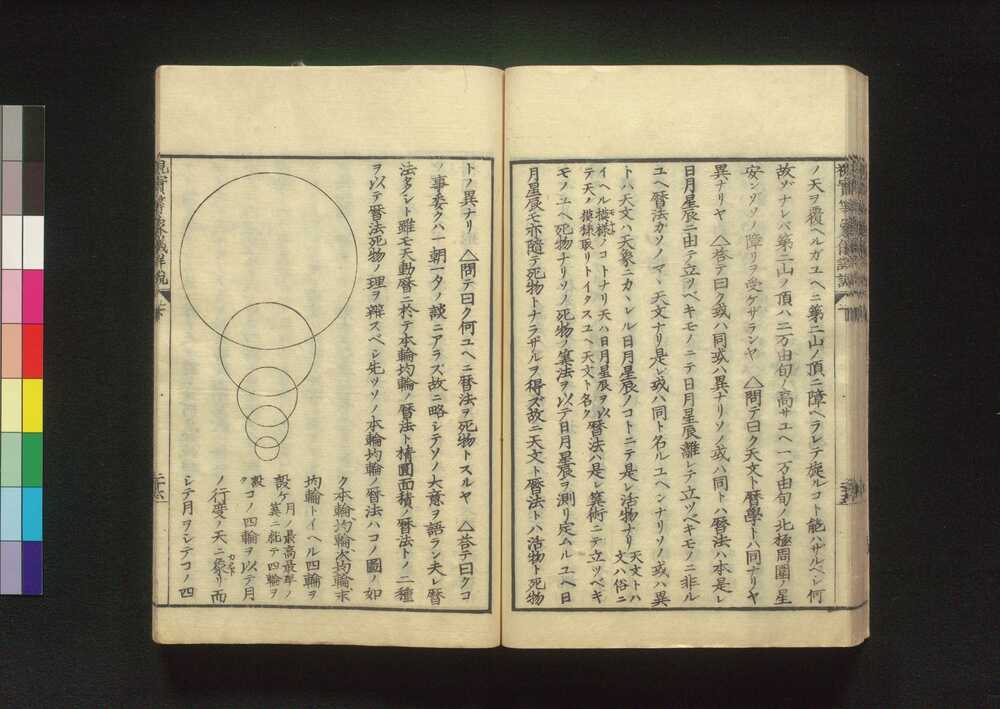 ノ天ヲ覆ヘルガユヘニ第二山ノ頂ニ障ヘラレテ旋ルコト能ハザルベシ何
故ゾナレバ第二山ノ頂ハ二万由旬ノ高サユヘ一万由旬ノ北極周圍ノ星
安ンゾソノ障リヲ受ケザランヤ △問テ曰ク天文ト曆學トハ同ナリヤ
異ナリヤ △荅テ曰ク或ハ同或ハ異ナリソノ或ハ同トハ曆法ハ本是レ
日月星辰ニ由テ立ツベキモノニテ日月星辰離レテ立ツベキモノニ非ル
ユヘ曆法ガソノマヽ天文ナリ是レ或ハ同ト名ルユヘンナリソノ或ハ異
トハ天文ハ天象ニカヽレル日月星辰ノコトニテ是レ活物ナリ 天文トハ文ハ俗ニ
イヘル摸様ノコトナリ天ハ日月星辰ヲ以テ天ノ摸様取リトイタスユヘ天文ト名ク 曆法ハ是レ筭術ニテ立ツベキ
モノユヘ死物ナリソノ死物ノ筭法ヲ以テ日月星辰ヲ測リ定ムルユヘ日
月星辰モ亦隨テ死物トナラザルヲ得ズ故ニ天文ト曆法トハ活物ト死物
トノ異ナリ △問テ曰ク何ユヘニ曆法ヲ死物トスルヤ △荅テ曰クコ
ノ事委クハ一朝一夕ノ談ニアラズ故ニ略シテソノ大意ヲ語ラン夫レ曆
法多シト雖モ天動曆ニ於テ本輪均輪ノ曆法ト楕圓面積ノ曆法トノ二種
ヲ以テ曆法死物ノ理ヲ辯スベシ先ツソノ本輪均輪ノ曆法ハコノ圖ノ如
ク本輪均輪次均輪次
均輪トイヘル四輪ヲ
設ケ 月ノ最高最卑ノ筭ニ就テ四輪ヲ
設 コノ四輪ヲ以テ月
ノ行度ノ天ニ象リ而
シテ月ヲシテコノ四